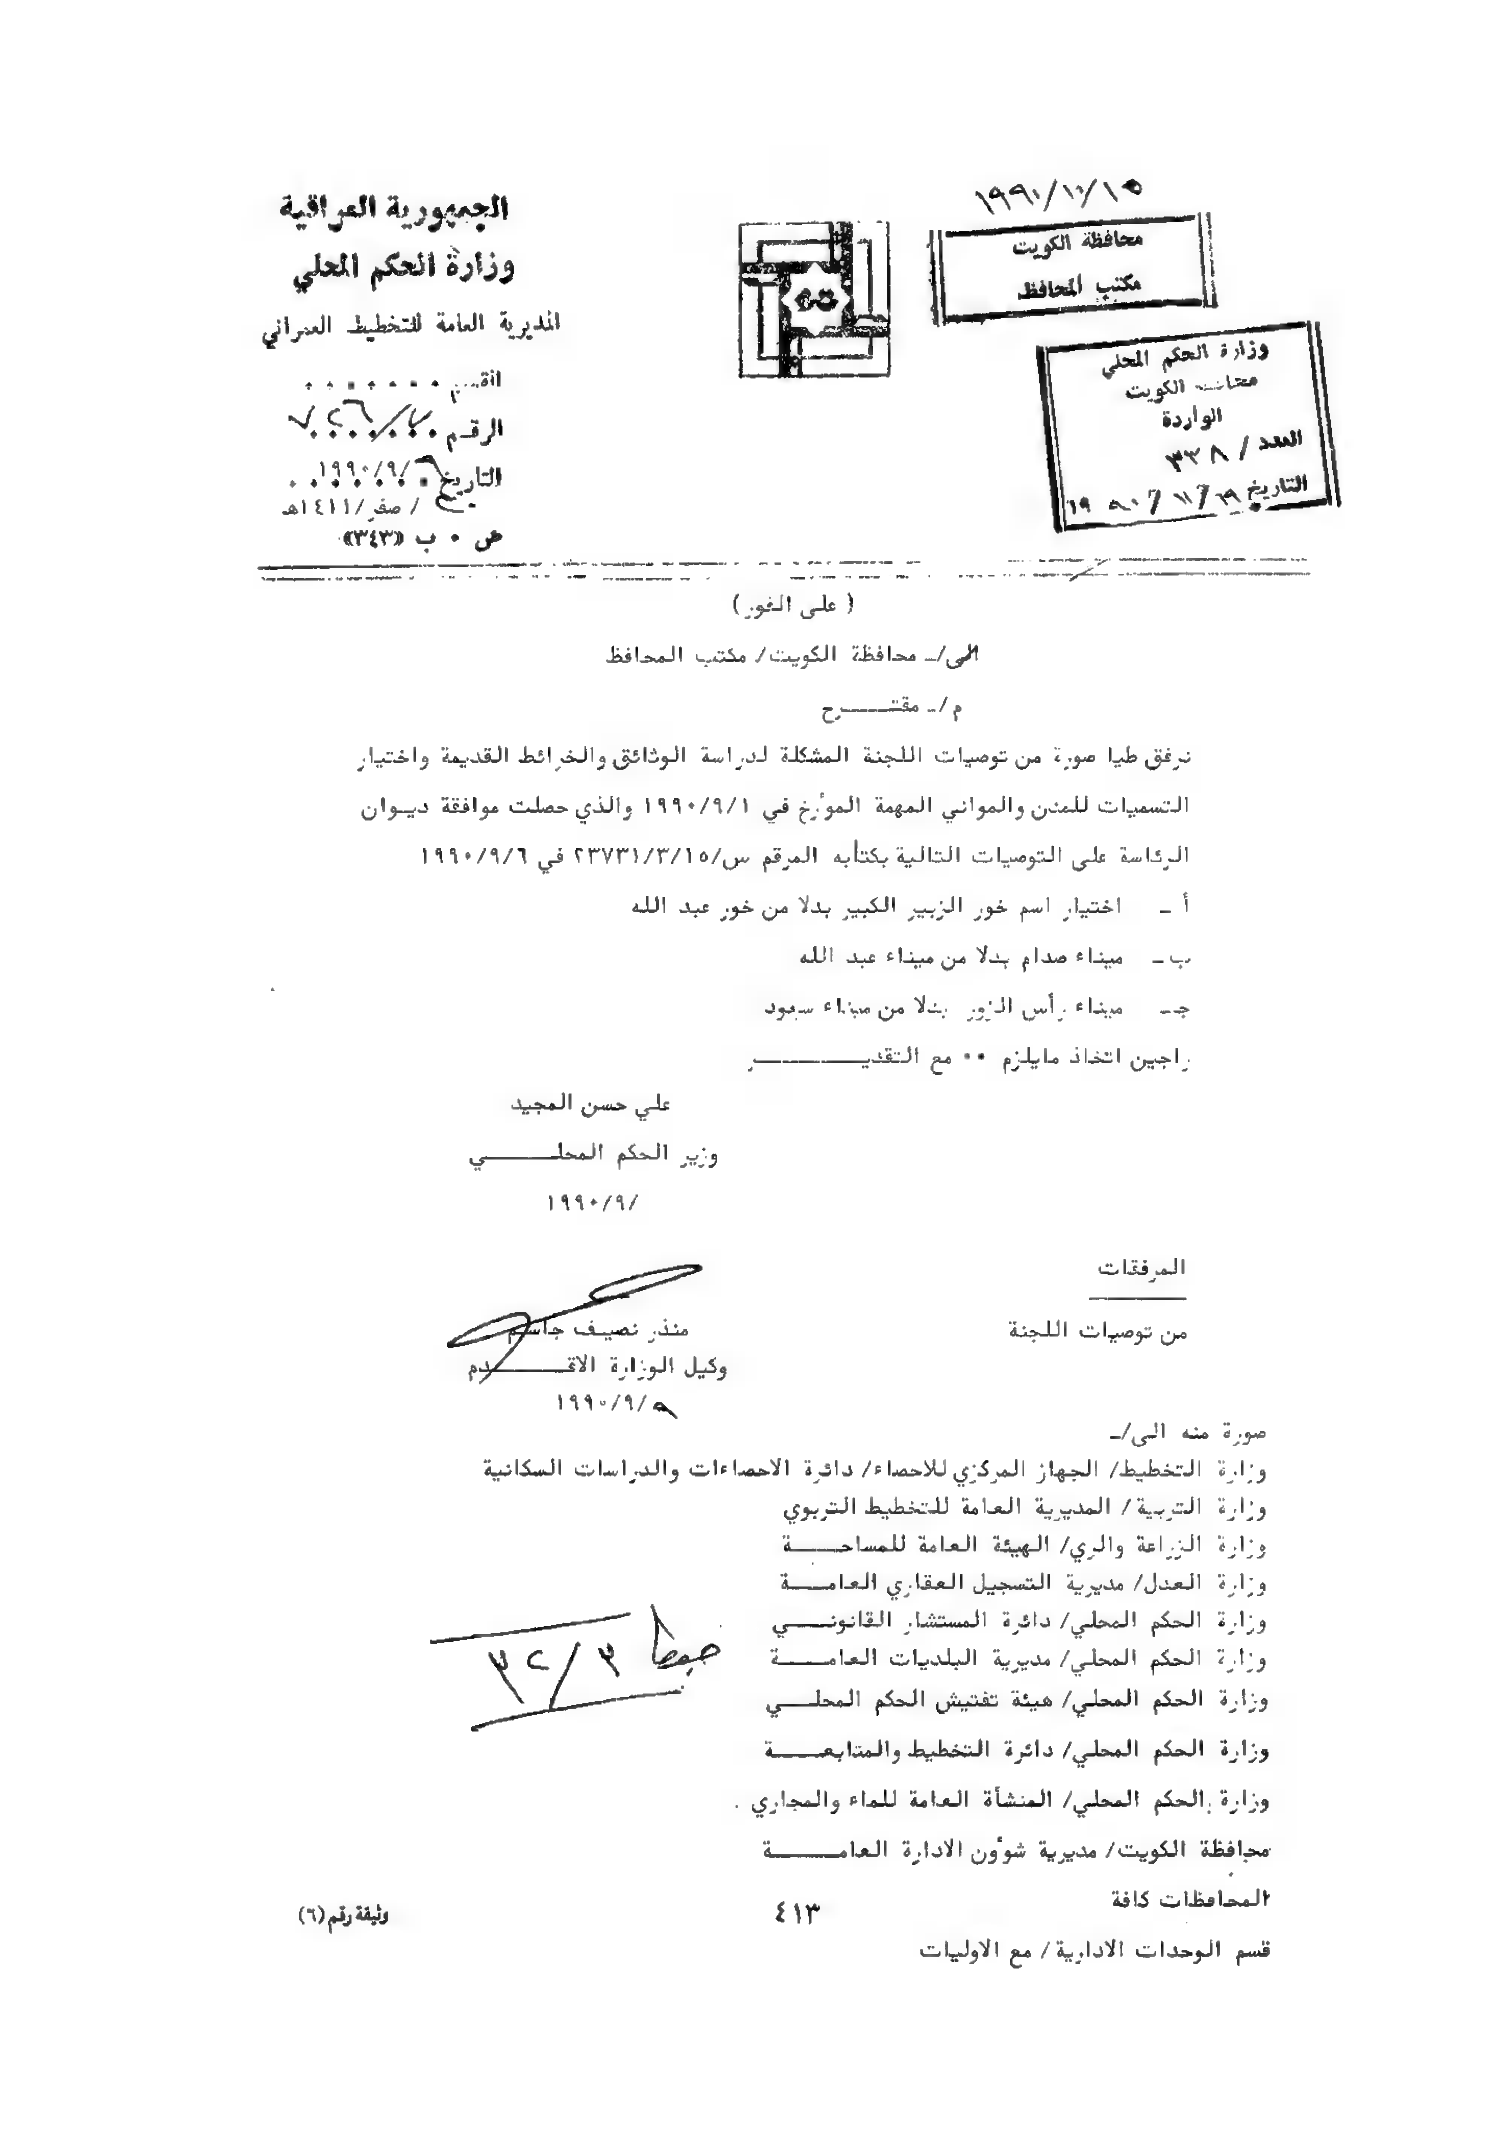 ١٩٩٠/١٠/١٥
محافظة الكويت
مكتب المحافظ
وزارة الحكم المحلي
محافظة الكويت
الواردة
العدد / ٣٣٨
التاريخ
الجمهورية العراقية
وزارة الحكم المحلي
المديرية العامة للتخطيط العمراني
القسم
الرقم
التاريخ ١٩٩٠/٩/
/ صفر/١٤١١هـ
ص ٠ ب «٣٤٣»
( على الفور )
الى/ـ محافظة الكويت/ مكتب المحافظ
م /ـ مقتـــرح
نرفق طيا صورة من توصيات اللجنة المشكلة لدراسة الوثائق والخرائط القديمة واختيار
التسميات للمدن والمواني المهمة المؤرخ في ١٩٩٠/٩/١ والذي حصلت موافقة ديـوان
الرئاسة على التوصيات التالية بكتابه المرقم س/٢٣٧٣١/٣/١٥ في ١٩٩٠/٩/٦
أ ـ اختيار اسم خور الزبير الكبير بدلا من خور عبد الله
ب ـ ميناء صدام بدلا من ميناء عبد الله
جـ ميناء رأس الزور بدلا من ميناء سعود
راجين اتخاذ مايلزم ٠٠ مع التقديـــــــر
علي حسن المجيد
وزير الحكم المحلـــــي
/١٩٩٠/٩
المرفقات
من توصيات اللجنة
منذر نصيـف جاسـم
وكيل الوزارة الاقـــــدم
١٩٩٠/٩/٩
صورة منه الى/ـ
وزارة التخطيط/ الجهاز المركزي للاحصاء/ دائرة الاحصاءات والدراسات السكانية
وزارة التربية / المديرية العامة للتخطيط التربوي
وزارة الزراعة والري/ الهيئة العامة للمساحـــة
وزارة العدل/ مديرية التسجيل العقاري العامـــة
وزارة الحكم المحلي/ دائرة المستشار القانونـــي
وزارة الحكم المحلي/ مديرية البلديات العامـــة
وزارة الحكم المحلي/ هيئة تفتيش الحكم المحلـــي
وزارة الحكم المحلي/ دائرة التخطيط والمتابعـــة
وزارة الحكم المحلي/ المنشأة العامة للماء والمجاري .
محافظة الكويت/ مديرية شؤون الادارة العامـــة
المحافظات كافة
قسم الوحدات الادارية / مع الاوليات
٣٢/٣
٤١٣
وثيقة رقم (٦)